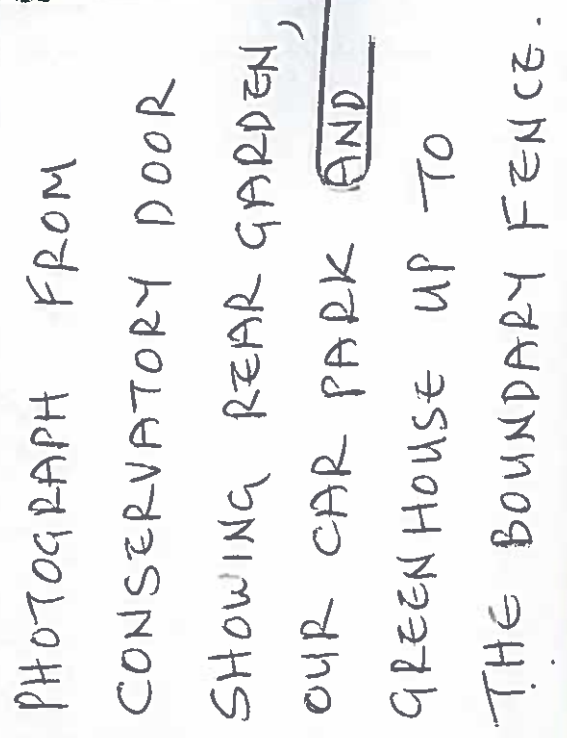 PHOTOGRAPH FROM
CONSERVATORY DOOR
SHOWING REAR GARDEN,
OUR CAR PARK AND
GREENHOUSE UP TO
THE BOUNDARY FENCE.